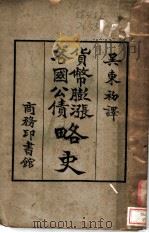 吴東初譯
貨幣膨漲
各國公債
略史
商務印書館